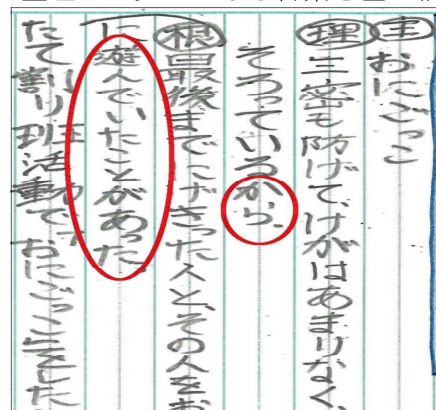 主 おにごっこ
理 三密も防げて、けがはあまりなく、
そろっているから、
根 最後までにげきった人と、その人をお
に遊んでいたことがあった。
たて割り班活動で、おにごっこをした